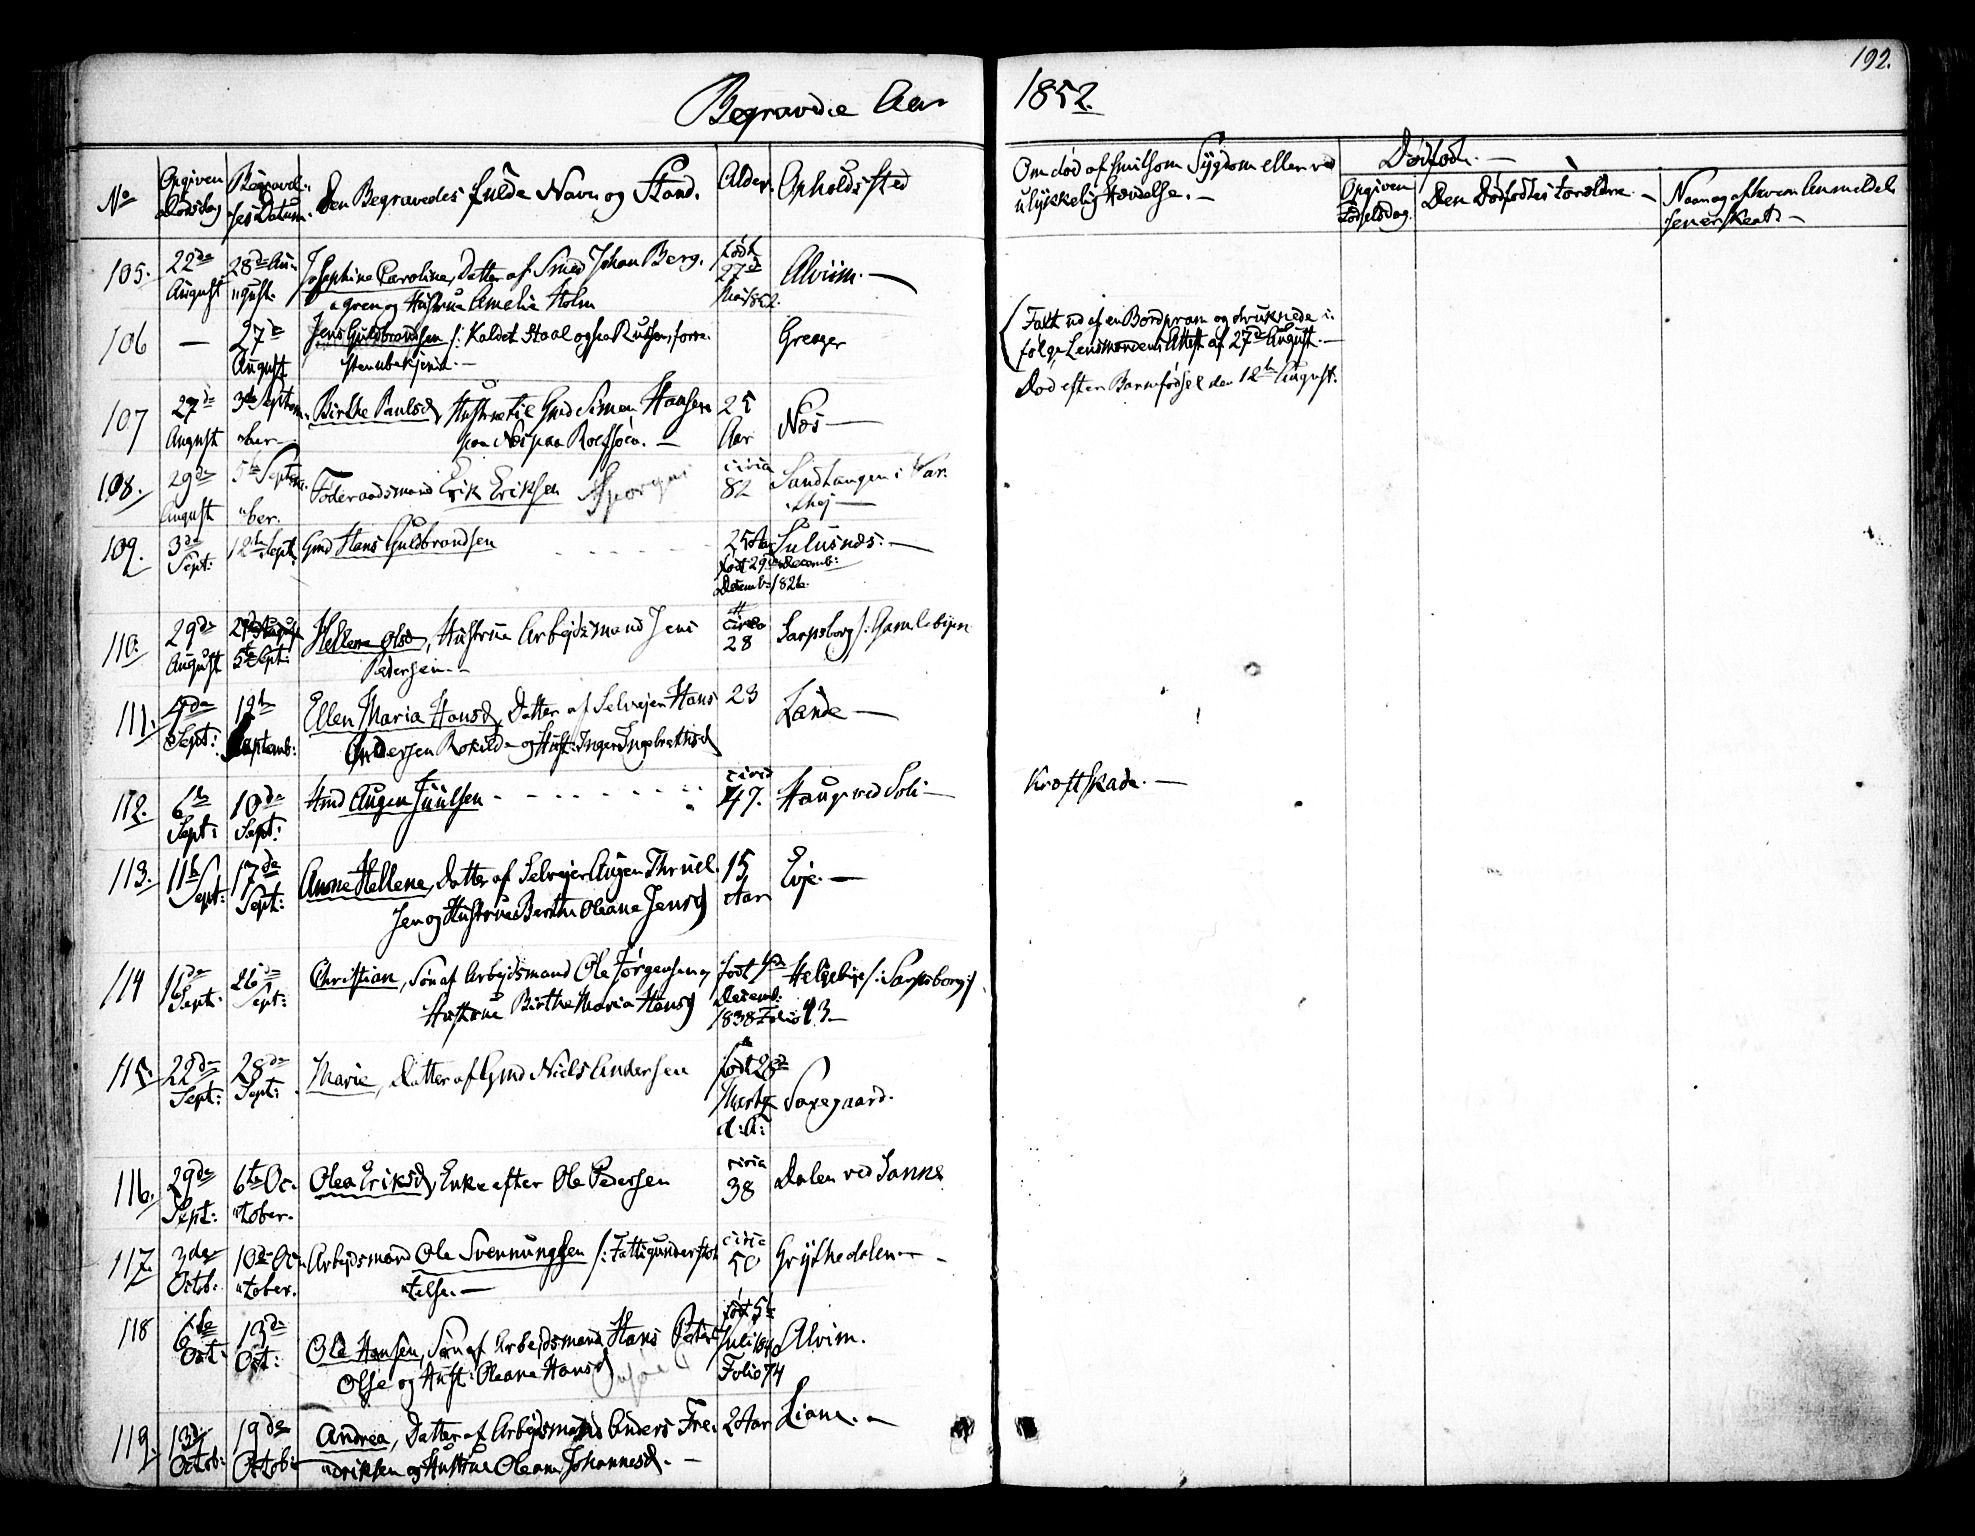 192.
Begravede Aar 1852.
No
Opgiven Dødsdag
Begravel-
ses Datum.
Den Begravedes fulde Navn og Stand.
Alder.
Opholdssted
Om død af smitsom Sygdom eller ved
ulykkelig Hændelse. -
Dødfødte. -
Opgiven
Fødselsdag.
Den Dødfødtes Forældre. -
Naar og af hvem Anmeldel-
sen er skeet. -
105. 22de August 28de Au-
"gust. Josephine Caroline, Datter af Smed Johan Berg-
"green og Hustrue Amelia Holm
født 27de Mai 1852. Alviim. -
106 - 27de August Jens Guldbrandsen /: Kaldet Staal og fra Rudsen, forre-
sten ubekjendt. -
Greaker
Faldt ud af en Bordpram og druknede i-
følge Lensmandens Attest af 27de August. -
107 27de August 3die Septem-
"ber - Birthe Paulsd, Hustrue til Gmd Simen Hansen
paa Næs paa Rolfsøen. -
25 Aar Næs -
Død efter Barnfødsel den 12te August.
108. 29de August 5te Septem-
"ber. Føderaadsmand Erik Eriksen
circa 82 Sandtangen i Var-
"thej -
109. 3de Sept: 12te Sept: Gmd Hans Guldbrandsen - - - - - -
25 Aar
født 29de Decemb:
Decemb: 1826.
110. 29de August 5te Sept: Hellene Olsd, Hustrue Arbejdsmand Jens
Pedersen. -
circa 28 Sarpsborg /: Gamlebyen
111. 4de Sept: 12te Septemb: Ellen Maria Hansd, Datter af Selvejer Hans
Andersen og Hust: Inger Ingebretsd
23 Lande -
112. 6te Sept: 10de Sept: Hmd Augen Juulsen - - - - - -
circa 47. Hauge ved Soli -
Kræftskade. -
113. 11te Sept: 17de Sept: Anne Hellene, Datter af Selvejer Augen Thruel-
sen og Hustrue Berthe Oleane Jensd
15 Aar Evje. -
114 16de Sept: 26de Sept: Christian, Søn af Arbejdsmand Ole Jørgensen og
Hustrue Birthe Maria Hansd
født
Decemb:
1838 Folio 93. -
/: Sarpsborg :/
115. 22de Sept: 28de Sept: Marie, Datter af Gmd Niels Andersen
født 28de
Martz
d: A: Saxegaard.
116. 29de Sept: 6te Oc-
"tober. Olea Eriksd, Enke efter Ole Pedersen
circa 38 Dalen ved Sanne
117. 3de Octob: 10de Oc-
"tober. Arbejdsmand Ole Svennungsen /: Fattigunderstøt-
"telse. -
circa 50 Grythedalen -
118 6te Oct: 13de Oct: Ole Hansen, Søn af Arbejdsmand Hans Peter
Olse og Hust: Oleane Hansd
født 5te
Juli 1840
Folio 74 Alvim.
119. 13de Octob: 19de Octob: Andrea, Datter af Arbejdsmand Anders Fre-
"driksen og Hustrue Oleane Johannesd. -
2 Aar Liane. -